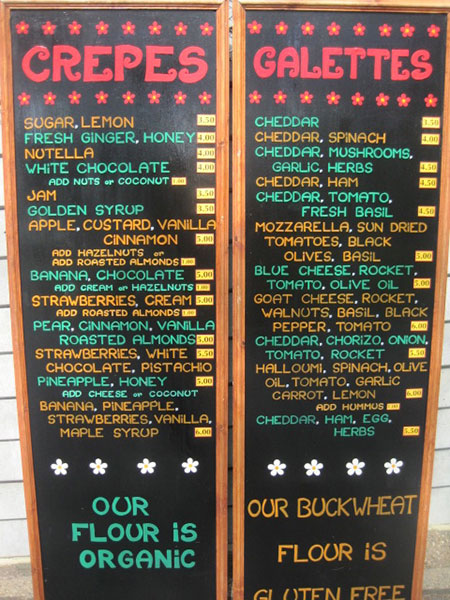 CREPES
SUGAR, LEMON 3.50
FRESH GINGER, HONEY 4.00
NUTELLA 4.00
WHITE CHOCOLATE 4.00
ADD NUTS or COCONUT 1.00
JAM 3.50
GOLDEN SYRUP 3.50
APPLE, CUSTARD, VANILLA
CINNAMON 5.00
ADD HAZELNUTS or
ADD ROASTED ALMONDS 1.00
BANANA, CHOCOLATE 5.00
ADD CREAM or HAZELNUTS 1.00
STRAWBERRIES, CREAM 5.00
ADD ROASTED ALMONDS 1.00
PEAR, CINNAMON, VANILLA
ROASTED ALMONDS 5.00
STRAWBERRIES, WHITE 5.50
CHOCOLATE, PISTACHIO
PINEAPPLE, HONEY 5.00
ADD CHEESE or COCONUT
BANANA, PINEAPPLE,
STRAWBERRIES, VANILLA,
MAPLE SYRUP 6.00
OUR
FLOUR iS
ORGANIC
GALETTES
CHEDDAR 3.50
CHEDDAR, SPINACH 4.00
CHEDDAR, MUSHROOMS,
GARLIC, HERBS 4.50
CHEDDAR, HAM 4.50
CHEDDAR, TOMATO,
FRESH BASIL 4.50
MOZZARELLA, SUN DRIED
TOMATOES, BLACK
OLIVES, BASIL 5.00
BLUE CHEESE, ROCKET,
TOMATO, OLIVE OIL 5.00
GOAT CHEESE, ROCKET,
WALNUTS, BASIL, BLACK
PEPPER, TOMATO 6.00
CHEDDAR, CHORIZO, ONION,
TOMATO, ROCKET 5.50
HALLOUMI, SPINACH, OLIVE
OIL, TOMATO, GARLIC
CARROT, LEMON 6.00
ADD HUMMUS
CHEDDAR, HAM, EGG,
HERBS 5.50
OUR BUCKWHEAT
FLOUR IS
GLUTEN FREE